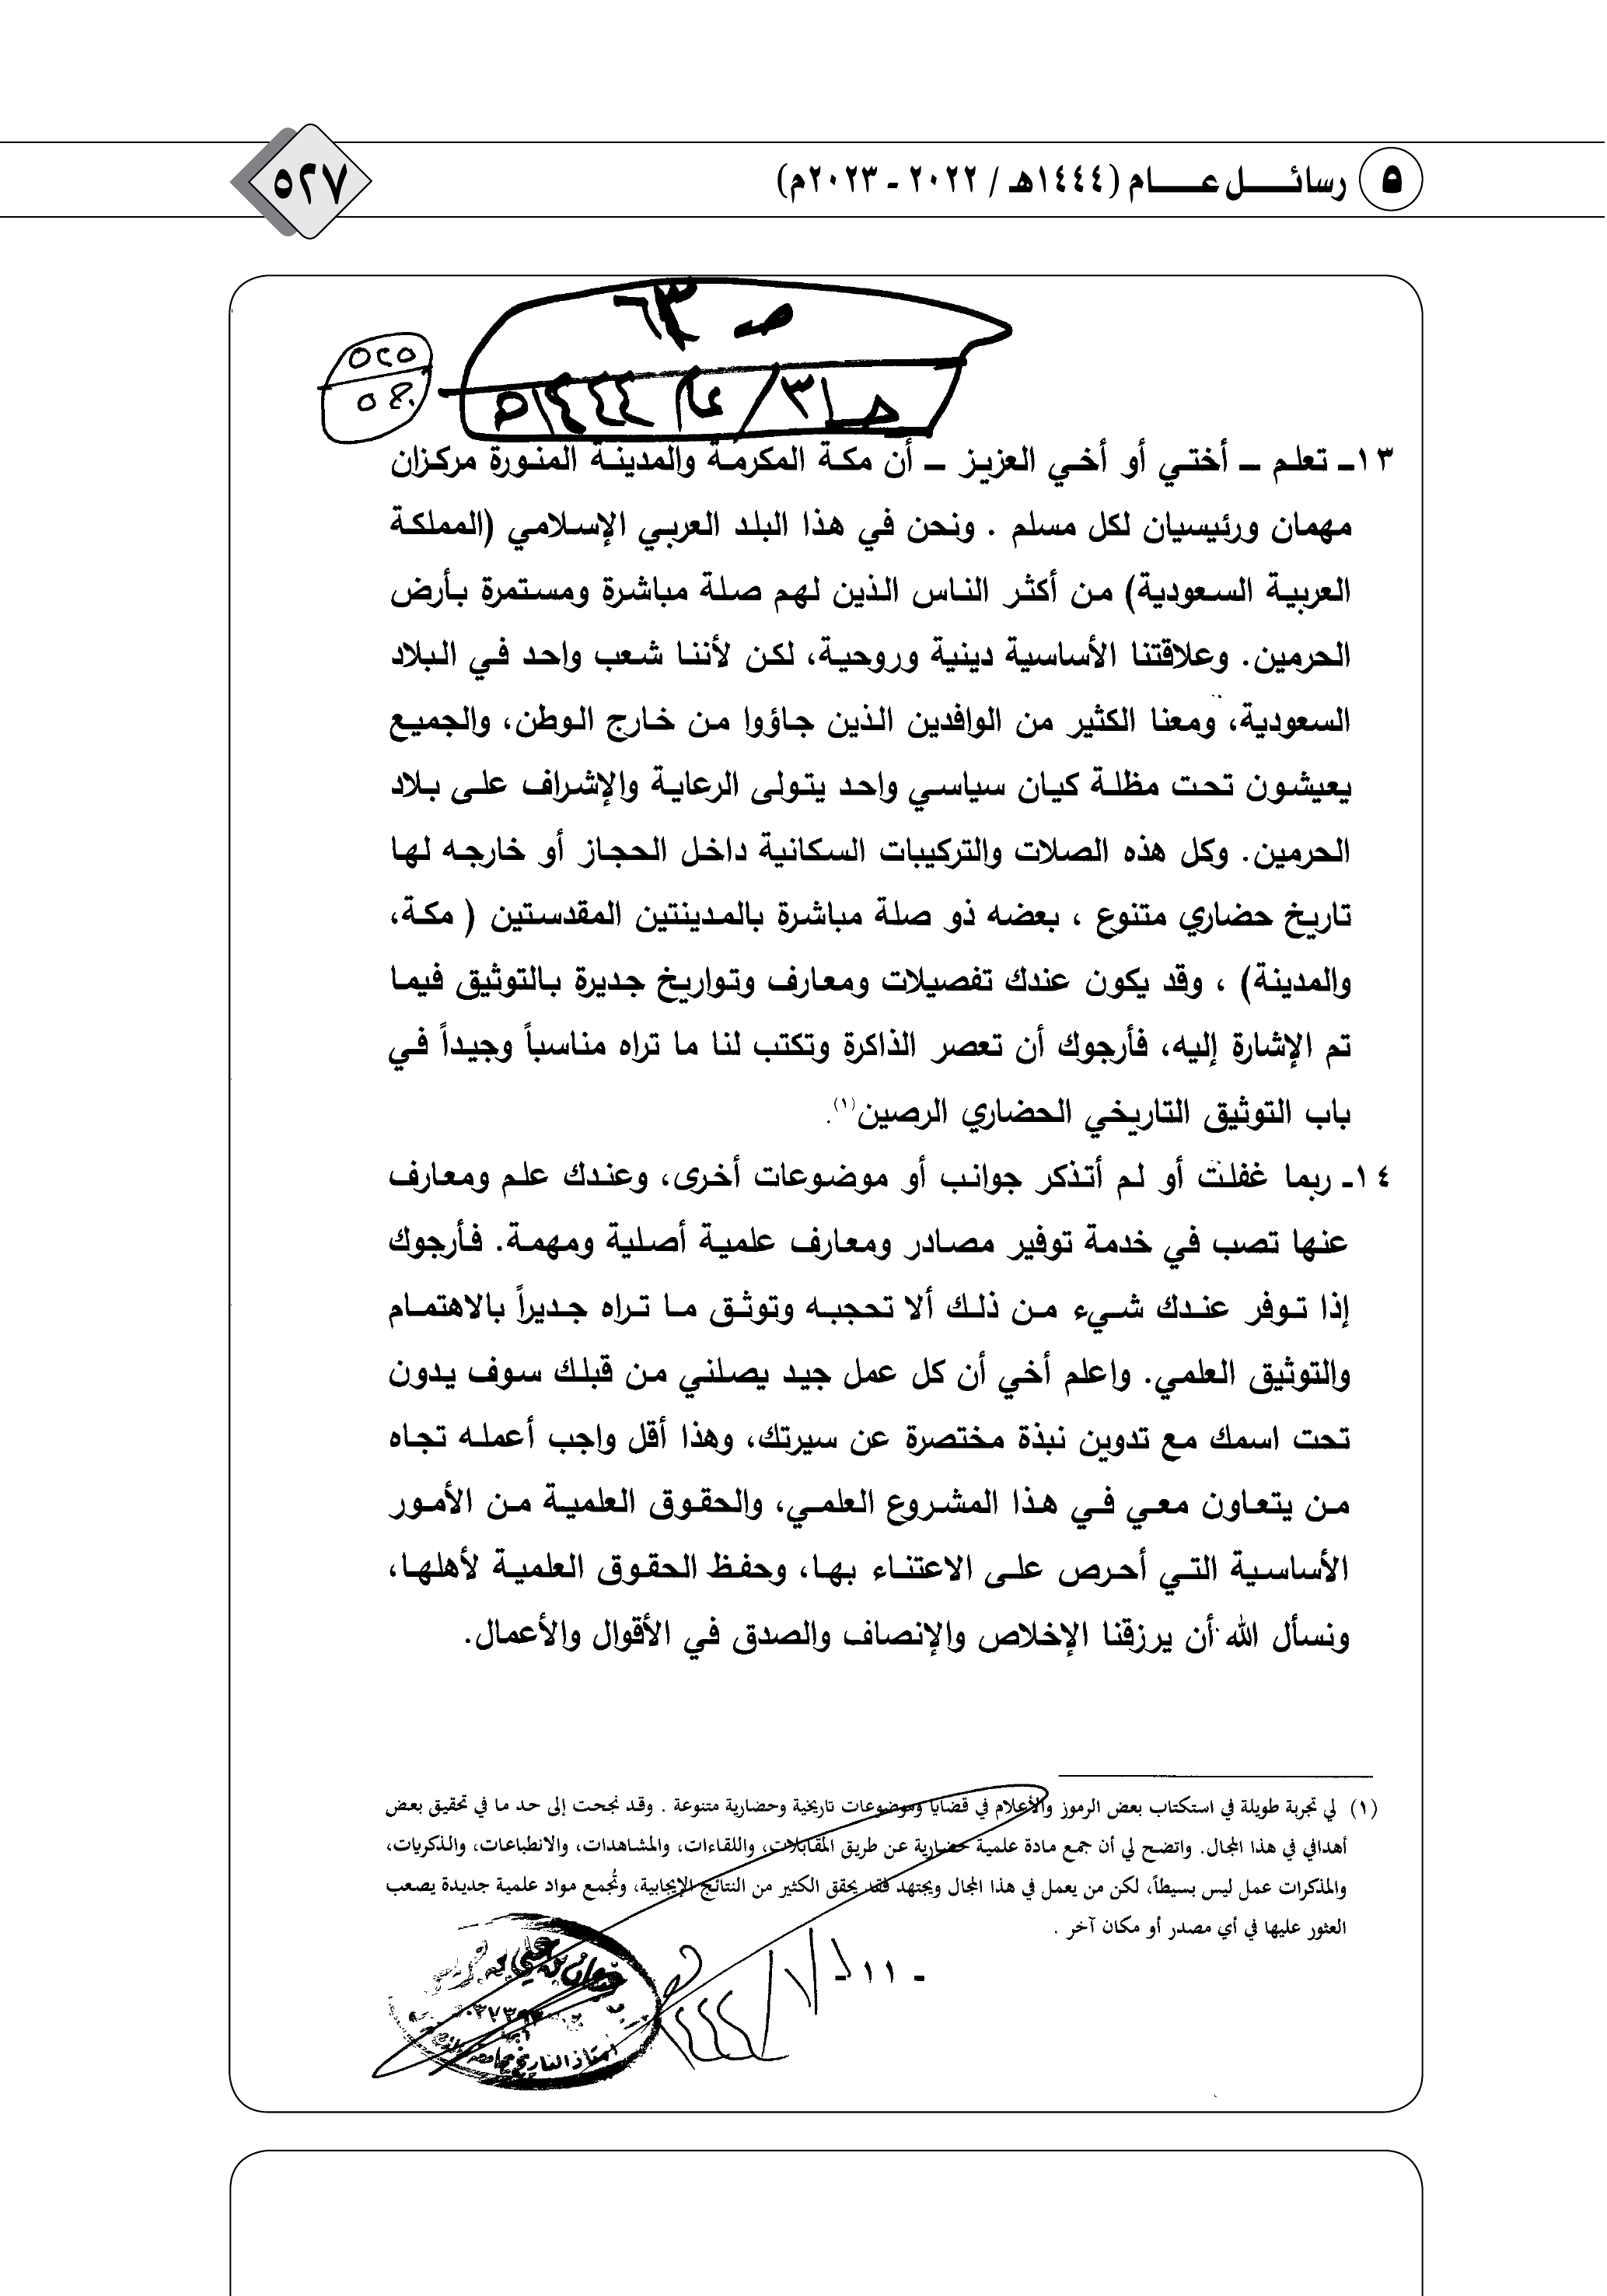 ٥ رسائل عام (١٤٤٤هـ / ٢٠٢٢ - ٢٠٢٣م)
٥٢٧
صـ ٦٣
٥٢٥
ج ٥
١٣ـ تعلم – أختي أو أخي العزيز – أن مكة المكرمة والمدينة المنورة مركزان
مهمان ورئيسيان لكل مسلم . ونحن في هذا البلد العربي الإسلامي (المملكة
العربية السعودية) من أكثر الناس الذين لهم صلة مباشرة ومستمرة بأرض
الحرمين. وعلاقتنا الأساسية دينية وروحية، لكن لأننا شعب واحد في البلاد
السعودية، ومعنا الكثير من الوافدين الذين جاؤوا من خارج الوطن، والجميع
يعيشون تحت مظلة كيان سياسي واحد يتولى الرعاية والإشراف على بلاد
الحرمين. وكل هذه الصلات والتركيبات السكانية داخل الحجاز أو خارجه لها
تاريخ حضاري متنوع ، بعضه ذو صلة مباشرة بالمدينتين المقدستين ( مكة،
والمدينة) ، وقد يكون عندك تفصيلات ومعارف وتواريخ جديرة بالتوثيق فيما
تم الإشارة إليه، فأرجوك أن تعصر الذاكرة وتكتب لنا ما تراه مناسباً وجيداً في
باب التوثيق التاريخي الحضاري الرصين(١).
١٤ـ ربما غفلت أو لم أتذكر جوانب أو موضوعات أخرى، وعندك علم ومعارف
عنها تصب في خدمة توفير مصادر ومعارف علمية أصلية ومهمة. فأرجوك
إذا توفر عندك شيء من ذلك ألا تحجبه وتوثق ما تراه جديراً بالاهتمام
والتوثيق العلمي. واعلم أخي أن كل عمل جيد يصلني من قبلك سوف يدون
تحت اسمك مع تدوين نبذة مختصرة عن سيرتك، وهذا أقل واجب أعمله تجاه
من يتعاون معي في هذا المشروع العلمي، والحقوق العلمية من الأمور
الأساسية التي أحرص على الاعتناء بها، وحفظ الحقوق العلمية لأهلها،
ونسأل الله أن يرزقنا الإخلاص والإنصاف والصدق في الأقوال والأعمال.
(١) لي تجربة طويلة في استكتاب بعض الرموز والأعلام في قضايا وموضوعات تاريخية وحضارية متنوعة . وقد نجحت إلى حد ما في تحقيق بعض
أهدافي في هذا المجال. واتضح لي أن جمع مادة علمية حضارية عن طريق المقابلات، واللقاءات، والمشاهدات، والانطباعات، والذكريات،
والمذكرات عمل ليس بسيطاً، لكن من يعمل في هذا المجال ويجتهد فقد يحقق الكثير من النتائج الإيجابية، وتُجمع مواد علمية جديدة يصعب
العثور عليها في أي مصدر أو مكان آخر .
- ١١ -
أستاذ التاريخ بجامعة